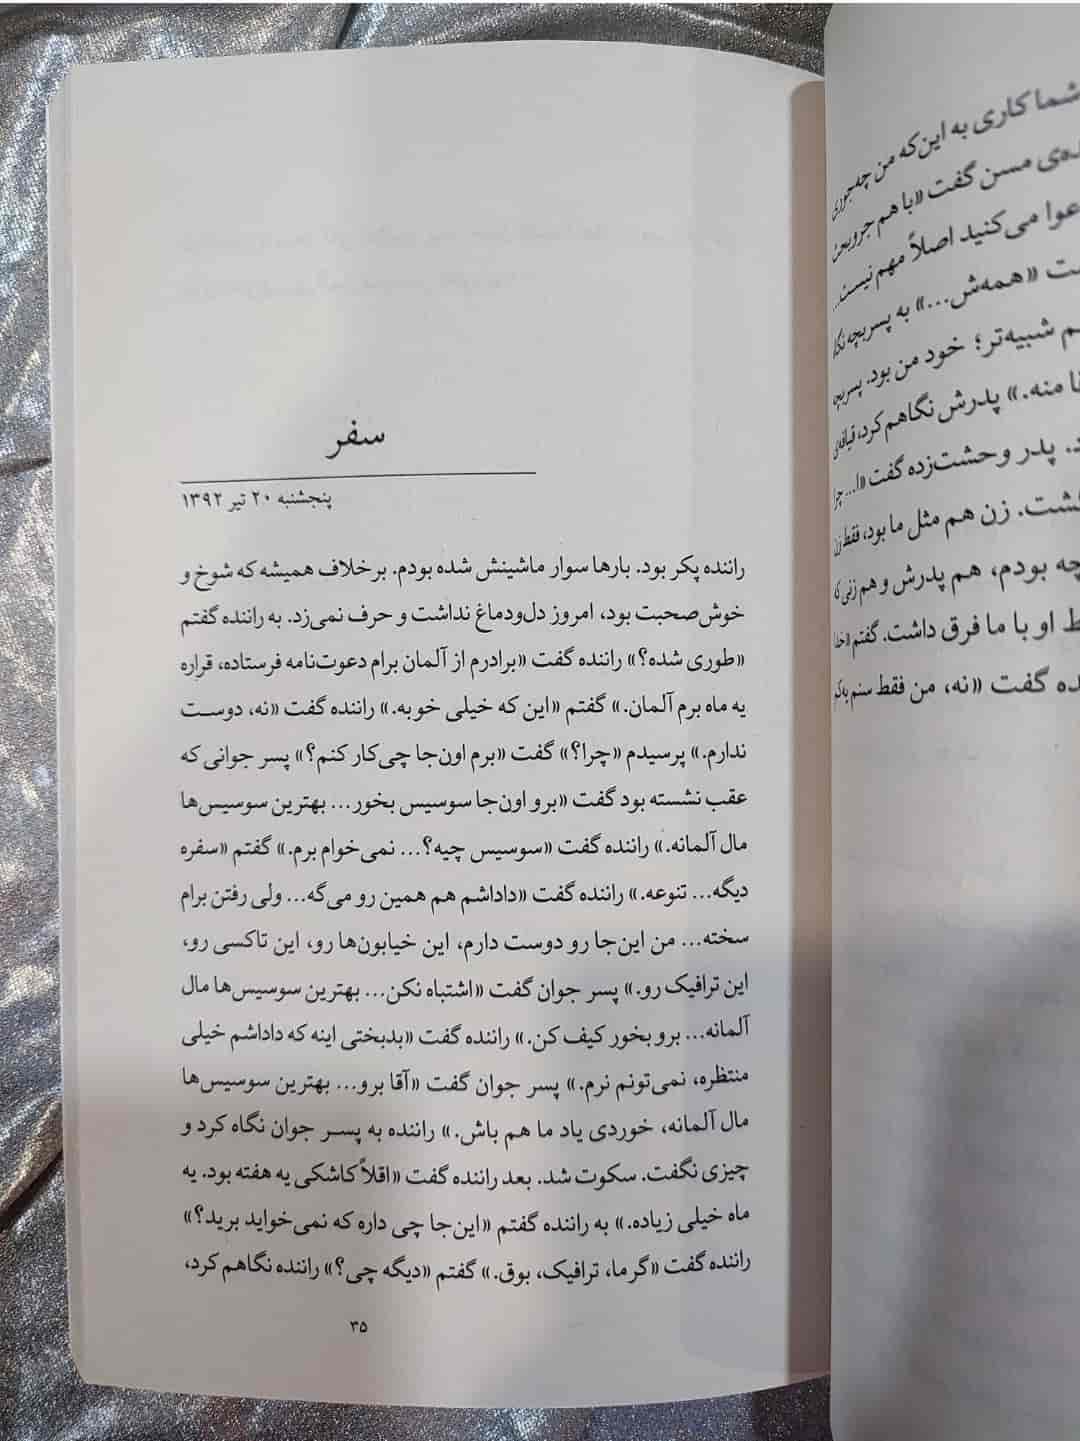 شما کاری به این‌که من چه‌جوری
ده‌ی مسن گفت «با هم جروبحث
عوا می‌کنید اصلاً مهم نیست...
ت «همه‌ش...» به پسربچه نگا
م شبیه‌تر؛ خود من بود. پسربچه
نا منه.» پدرش نگاهم کرد، قیافه‌ی
د. پدر وحشت‌زده گفت «ا... چرا
گشت. زن هم مثل ما بود، فقط زن
چه بودم، هم پدرش و هم زنی که
ط او با ما فرق داشت. گفتم
ده گفت «نه، من فقط سنم به
سفر
پنجشنبه ۲۰ تیر ۱۳۹۲
راننده پکر بود. بارها سوار ماشینش شده بودم. برخلاف همیشه که شوخ و
خوش‌صحبت بود، امروز دل‌ودماغ نداشت و حرف نمی‌زد. به راننده گفتم
«طوری شده؟» راننده گفت «برادرم از آلمان برام دعوت‌نامه فرستاده، قراره
یه ماه برم آلمان.» گفتم «این که خیلی خوبه.» راننده گفت «نه، دوست
ندارم.» پرسیدم «چرا؟» گفت «برم اون‌جا چی‌کار کنم؟» پسر جوانی که
عقب نشسته بود گفت «برو اون‌جا سوسیس بخور... بهترین سوسیس‌ها
مال آلمانه.» راننده گفت «سوسیس چیه؟... نمی‌خوام برم.» گفتم «سفره
دیگه... تنوعه.» راننده گفت «داداشم هم همین رو می‌گه... ولی رفتن برام
سخته... من این‌جا رو دوست دارم، این خیابون‌ها رو، این تاکسی رو،
این ترافیک رو.» پسر جوان گفت «اشتباه نکن... بهترین سوسیس‌ها مال
آلمانه... برو بخور کیف کن.» راننده گفت «بدبختی اینه که داداشم خیلی
منتظره، نمی‌تونم نرم.» پسر جوان گفت «آقا برو... بهترین سوسیس‌ها
مال آلمانه، خوردی یاد ما هم باش.» راننده به پسر جوان نگاه کرد و
چیزی نگفت. سکوت شد. بعد راننده گفت «اقلاً کاشکی یه هفته بود. یه
ماه خیلی زیاده.» به راننده گفتم «این‌جا چی داره که نمی‌خواید برید؟»
راننده گفت «گرما، ترافیک، بوق.» گفتم «دیگه چی؟» راننده نگاهم کرد،
۳۵